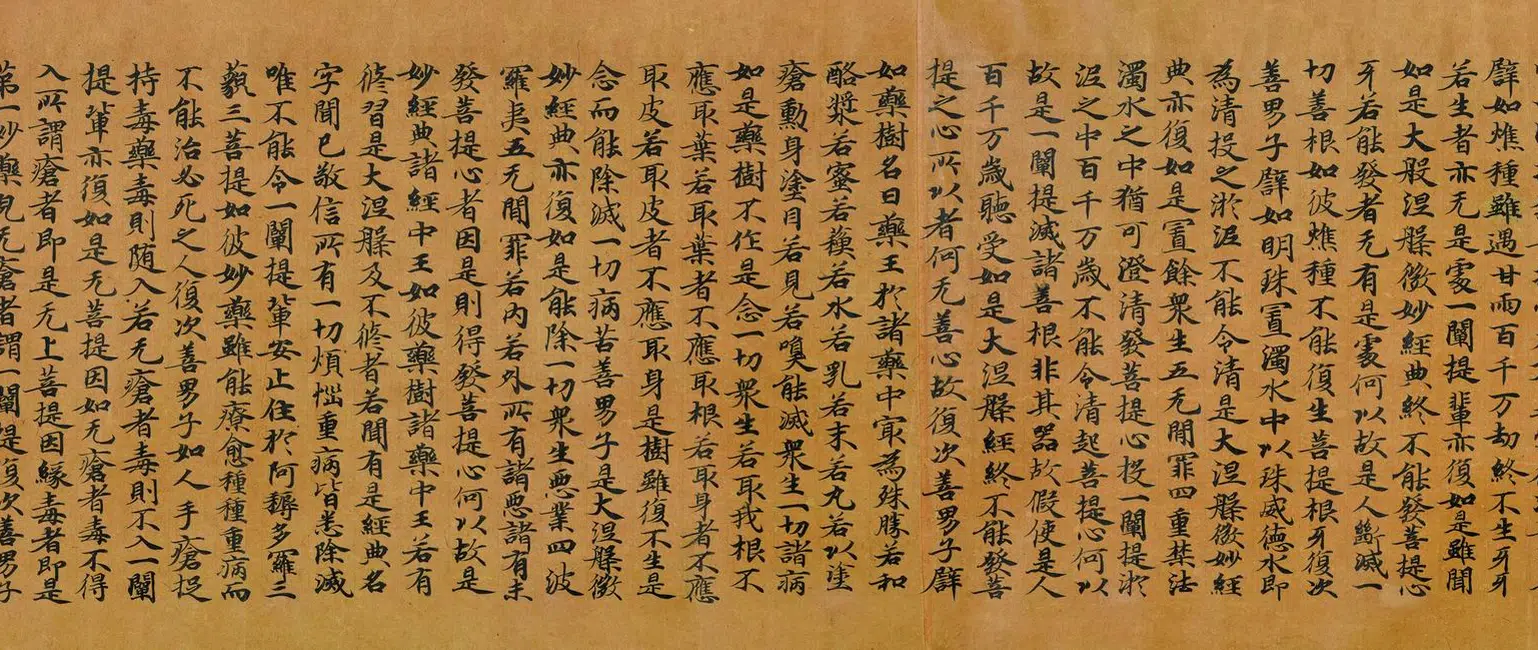 譬如燋種雖遇甘雨百千万劫終不生牙牙
若生者亦无是處一闡提輩亦復如是雖聞
如是大般涅槃微妙經典終不能發菩提心
牙若能發者无有是處何以故是人斷滅一
切善根如彼燋種不能復生菩提根牙復次
善男子譬如明珠置濁水中以珠威德水即
為清投之淤泥不能令清是大涅槃微妙經
典亦復如是置餘衆生五无間罪四重禁法
濁水之中猶可澄清發菩提心投一闡提淤
泥之中百千万歲不能令清起菩提心何以
故是一闡提滅諸善根非其器故假使是人
百千万歲聽受如是大涅槃經終不能發菩
提之心所以者何无善心故復次善男子譬
如藥樹名曰藥王於諸藥中冣為殊勝若和
酪漿若蜜若蘓若水若乳若末若丸若以塗
瘡勳身塗目若見若嗅能滅衆生一切諸病
如是藥樹不作是念一切衆生若取我根不
應取葉若取葉者不應取根若取身者不應
取皮若取皮者不應取身是樹雖復不生是
念而能除滅一切病苦善男子是大涅槃微
妙經典亦復如是能除一切衆生悪業四波
羅夷五无間罪若內若外所有諸悪諸有未
發菩提心者因是則得發菩提心何以故是
妙經典諸經中王如彼藥樹諸藥中王若有
脩習是大涅槃及不脩者若聞有是經典名
字聞已敬信所有一切煩惱重病皆悉除滅
唯不能令一闡提輩安止住於阿耨多羅三
藐三菩提如彼妙藥雖能療愈種種重病而
不能治必死之人復次善男子如人手瘡捉
持毒藥毒則随入若无瘡者毒則不入一闡
提輩亦復如是无菩提因如无瘡者毒不得
入所謂瘡者即是无上菩提因緣毒者即是
第一妙藥完无瘡者謂一闡提復次善男子